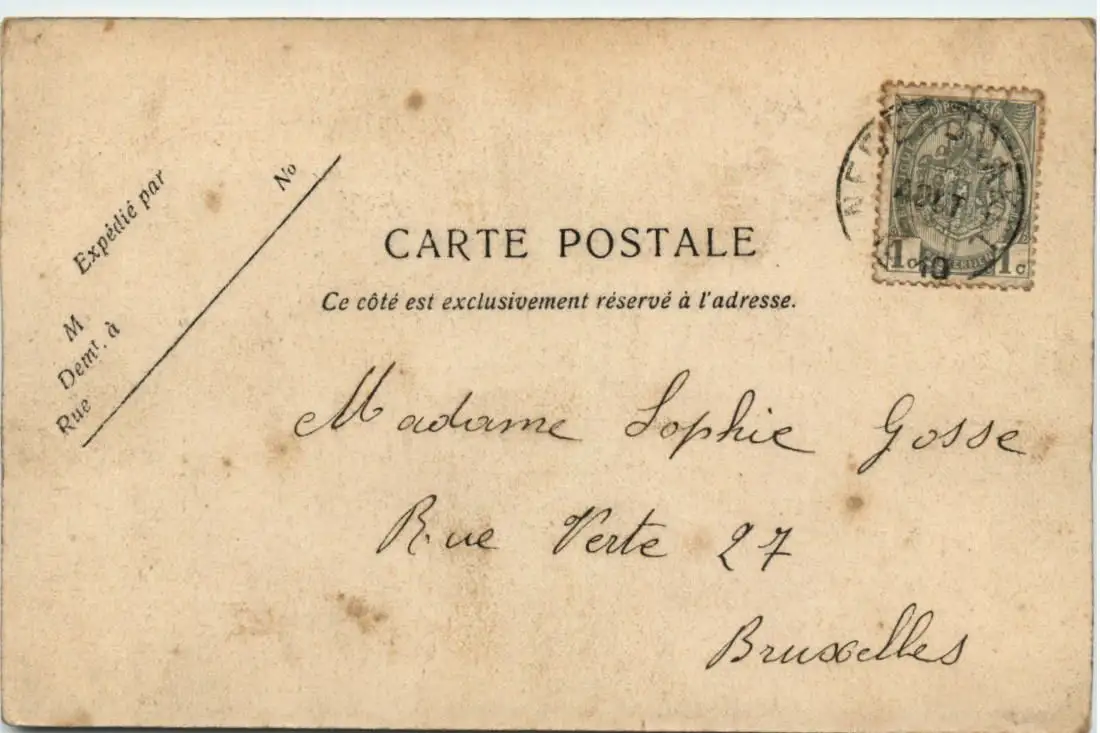 CARTE POSTALE
Ce côté est exclusivement réservé à l'adresse.
Expédié par
M
Demᵗ. à
Rue
No
1c 1c
AOUT
10
Madame Sophie Gosse
Rue Verte 27
Bruxelles